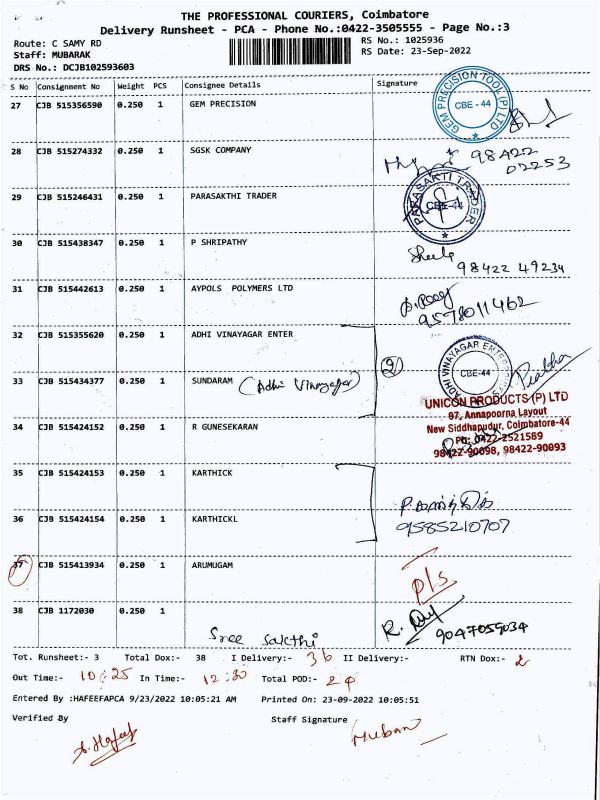 THE PROFESSIONAL COURIERS, Coimbatore
Delivery Runsheet - PCA - Phone No.:0422-3505555 - Page No.:3
Route: C SAMY RD
RS No.: 1025936
Staff: MUBARAK
RS Date: 23-Sep-2022
DRS No.: DCJB102593603
S No Consignment No Weight PCS Consignee Details Signature
27 CJB 515356590 0.250 1 GEM PRECISION
GEM PRECISION TOOL (P) LTD
CBE - 44
28 CJB 515274332 0.250 1 SGSK COMPANY
98422
02253
29 CJB 515246431 0.250 1 PARASAKTHI TRADER
PARASAKTI TRADER
CBE-44
30 CJB 515438347 0.250 1 P SHRIPATHY
98422 49234
31 CJB 515442613 0.250 1 AYPOLS POLYMERS LTD
9578011462
32 CJB 515355620 0.250 1 ADHI VINAYAGAR ENTER
ADHI VINAYAGAR ENTERPRISES
CBE-44
2
33 CJB 515434377 0.250 1 SUNDARAM (Adhi Vinayagar)
Prabha
UNICON PRODUCTS (P) LTD
97, Annapoorna Layout
34 CJB 515424152 0.250 1 R GUNESEKARAN
New Siddhapudur, Coimbatore-44
Ph: 0422-2521589
98422-90098, 98422-90093
35 CJB 515424153 0.250 1 KARTHICK
36 CJB 515424154 0.250 1 KARTHICKL
9585210707
37 CJB 515413934 0.250 1 ARUMUGAM
P/S
38 CJB 1172030 0.250 1
Sree Sakthi
9047059034
Tot. Runsheet:- 3 Total Dox:- 38 I Delivery:- 36 II Delivery:- RTN Dox:- 2
Out Time:- 10:25 In Time:- 12:30 Total POD:-
Entered By :HAFEEFAPCA 9/23/2022 10:05:21 AM Printed On: 23-09-2022 10:05:51
Verified By Staff Signature